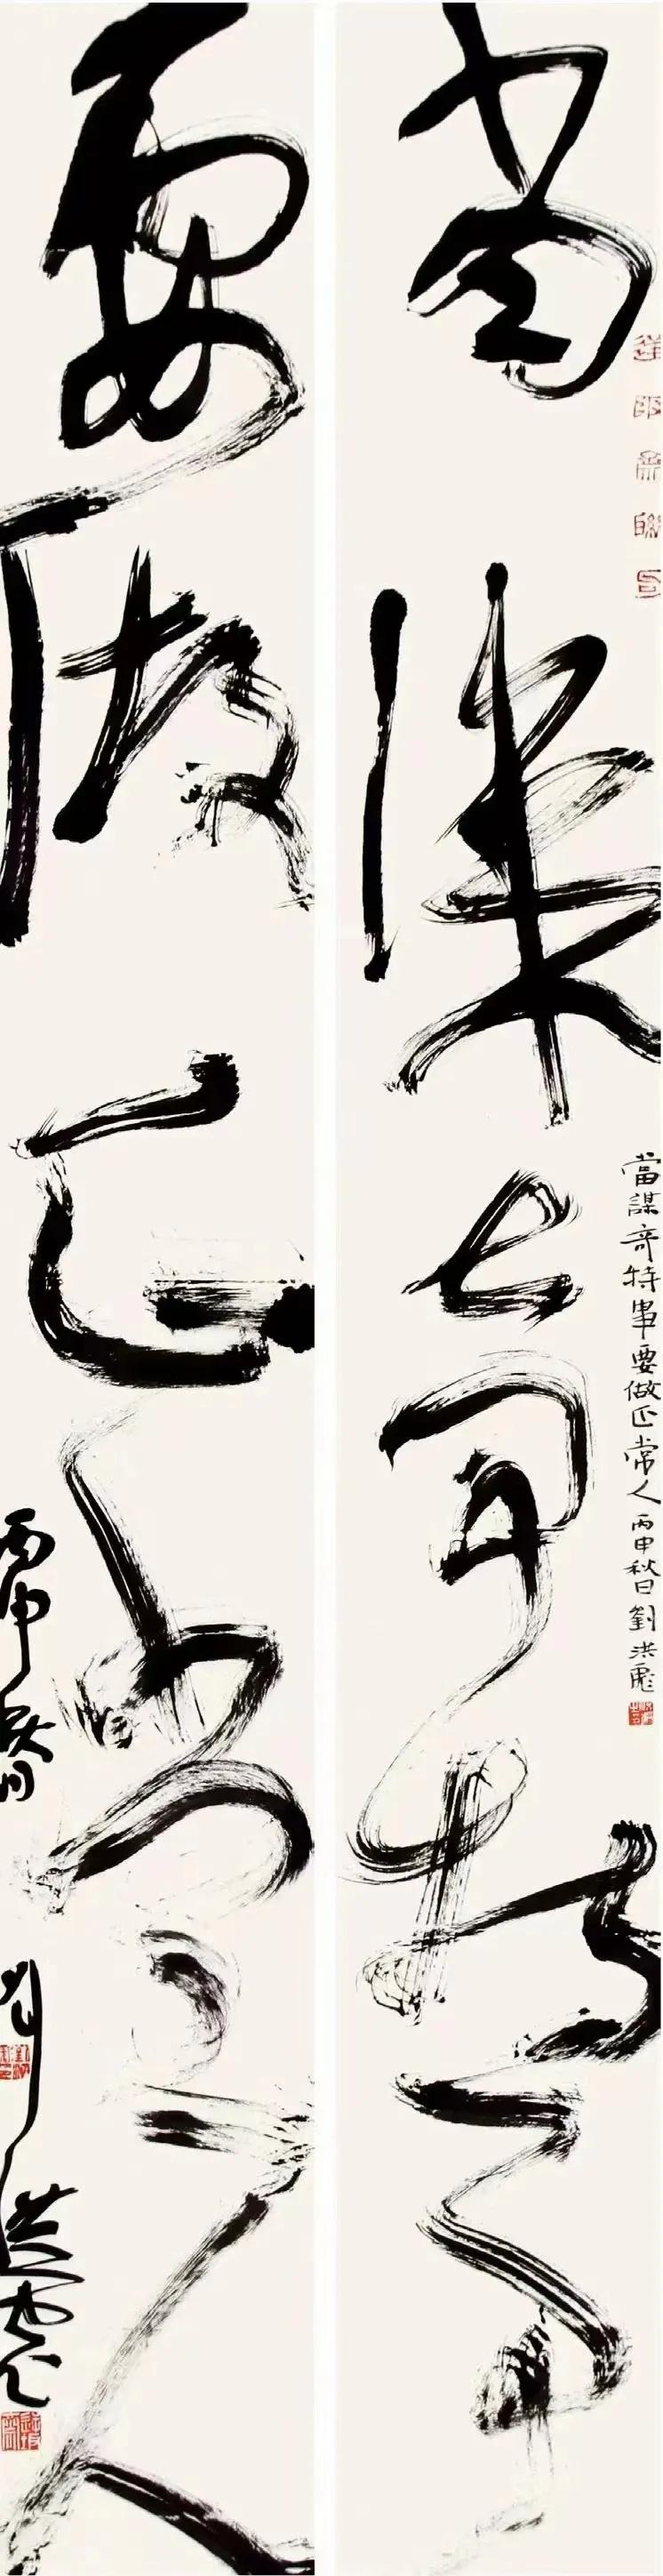 當謀奇特事
當謀奇特事要做正常人丙申秋日劉洪彪
要做正常人
丙申秋日
劉洪彪